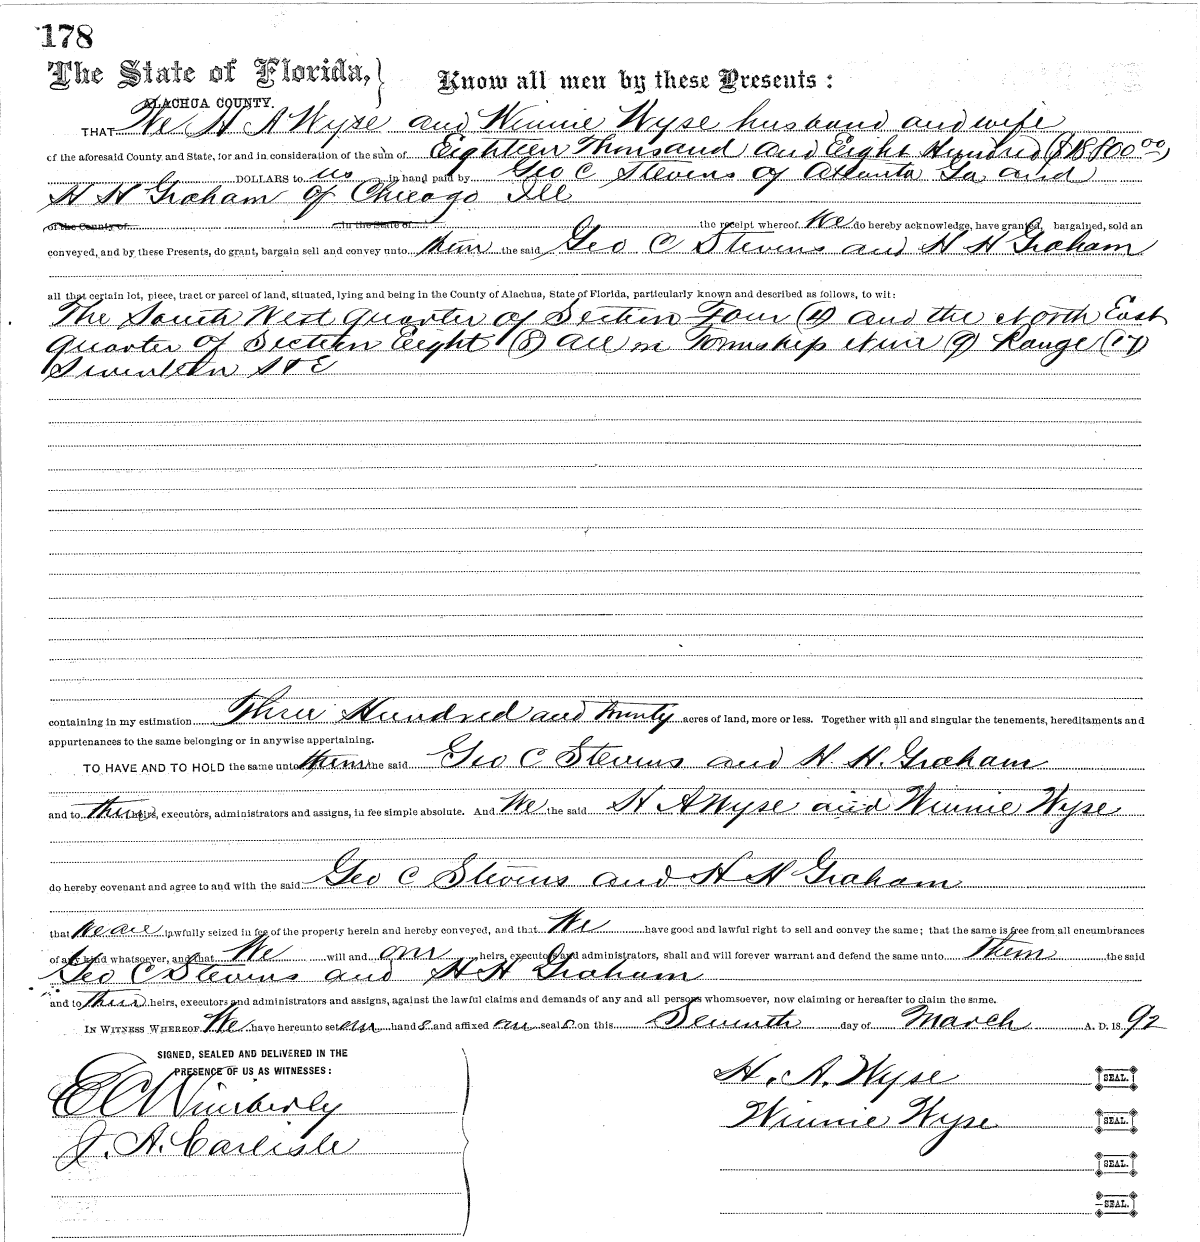 178
The State of Florida, } Know all men by these Presents :
ALACHUA COUNTY.
THAT We H A Wyse and Winnie Wyse husband and wife
of the aforesaid County and State, for and in consideration of the sum of Eighteen Thousand and Eight Hundred ($18,800 00)
DOLLARS to us in hand paid by Geo C Stevens of Atlanta Ga and
H H Graham of Chicago Ill
of the County of in the State of the receipt whereof We do hereby acknowledge, have granted, bargained, sold an
conveyed, and by these Presents, do grant, bargain sell and convey unto them the said Geo C Stevens and H H Graham
all that certain lot, piece, tract or parcel of land, situated, lying and being in the County of Alachua, State of Florida, particularly known and described as follows, to wit:
The South West quarter of Section Four (4) and the North East
quarter of Section Eight (8) all in Township Nine (9) Range (17)
Seventeen S & E
containing in my estimation Three Hundred and Twenty acres of land, more or less. Together with all and singular the tenements, hereditaments and
appurtenances to the same belonging or in anywise appertaining.
TO HAVE AND TO HOLD the same unto them the said Geo C Stevens and H. H. Graham
and to their heirs, executors, administrators and assigns, in fee simple absolute. And We the said H A Wyse and Winnie Wyse
do hereby covenant and agree to and with the said Geo C Stevens and H H Graham
that We are lawfully seized in fee of the property herein and hereby conveyed, and that We have good and lawful right to sell and convey the same; that the same is free from all encumbrances
of any kind whatsoever, and that We will and our heirs, executors and administrators, shall and will forever warrant and defend the same unto Them the said
Geo C Stevens and H H Graham
and to their heirs, executors and administrators and assigns, against the lawful claims and demands of any and all persons whomsoever, now claiming or hereafter to claim the same.
IN WITNESS WHEREOF We have hereunto set our hands and affixed our seals on this Seventh day of March A. D. 1892
SIGNED, SEALED AND DELIVERED IN THE
PRESENCE OF US AS WITNESSES:
E C Wimberly
J. A. Carlisle
H. A. Wyse SEAL.
Winnie Wyse SEAL.
SEAL.
SEAL.